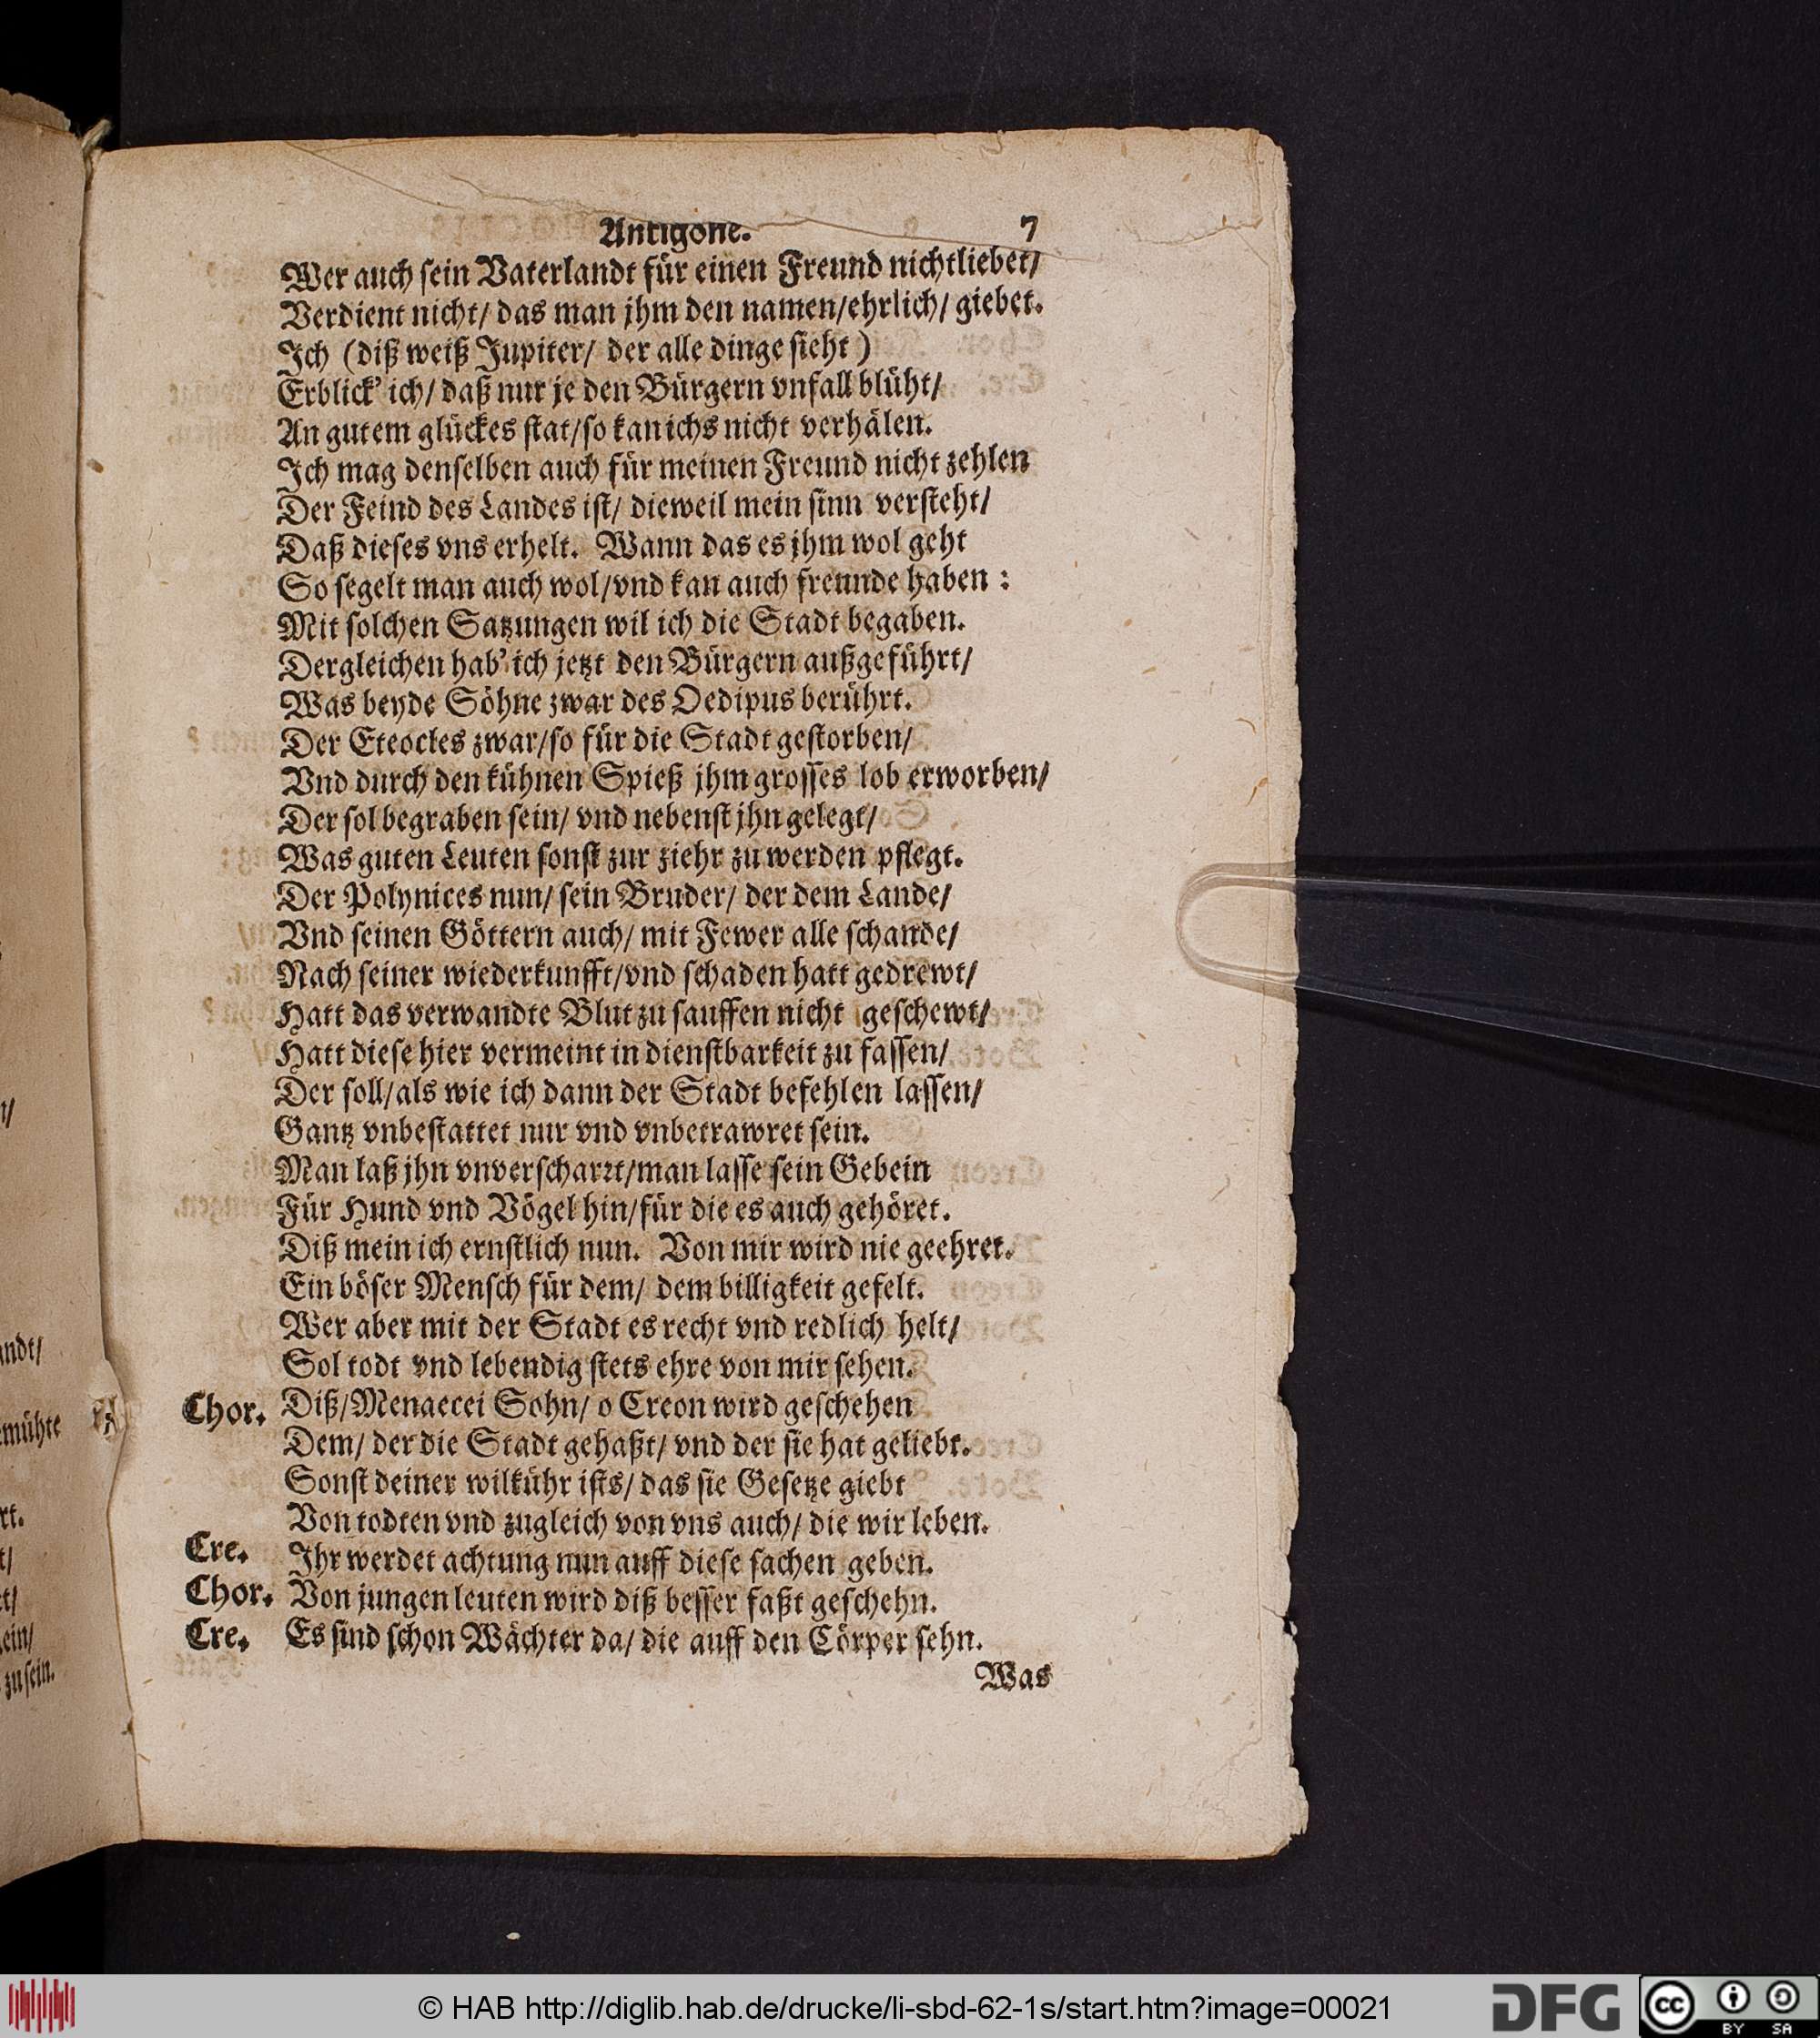 Antigone. 7
Wer auch sein Vaterlandt für einen Freund nicht liebet/
Verdient nicht/ das man jhm den namen/ehrlich/ giebet.
Ich (diß weiß Jupiter/ der alle dinge sieht)
Erblick' ich/ daß nur je den Bürgern vnfall blüht/
An gutem glückes stat/so kan ichs nicht verhälen.
Ich mag denselben auch für meinen Freund nicht zehlen
Der Feind des Landes ist/ dieweil mein sinn versteht/
Daß dieses vns erhelt. Wann das es jhm wol geht
So segelt man auch wol/vnd kan auch freunde haben:
Mit solchen Satzungen wil ich die Stadt begaben.
Dergleichen hab' ich jetzt den Bürgern außgeführt/
Was beyde Söhne zwar des Oedipus berührt.
Der Eteocles zwar/so für die Stadt gestorben/
Vnd durch den kühnen Spieß jhm grosses lob erworben/
Der sol begraben sein/ vnd nebenst jhn gelegt/
Was guten Leuten sonst zur ziehr zu werden pflegt.
Der Polynices nun/ sein Bruder/ der dem Lande/
Vnd seinen Göttern auch/ mit Fewer alle schande/
Nach seiner wiederkunfft/vnd schaden hatt gedrewt/
Hatt das verwandte Blut zu sauffen nicht geschewt/
Hatt diese hier vermeint in dienstbarkeit zu fassen/
Der soll/als wie ich dann der Stadt befehlen lassen/
Gantz vnbestattet nur vnd vnbetrawret sein.
Man laß jhn vnverscharrt/man lasse sein Gebein
Für Hund vnd Vögel hin/für die es auch gehöret.
Diß mein ich ernstlich nun. Von mir wird nie geehret.
Ein böser Mensch für dem/ dem billigkeit gefelt.
Wer aber mit der Stadt es recht vnd redlich helt/
Sol todt vnd lebendig stets ehre von mir sehen.
Chor. Diß/Menaecei Sohn/ o Creon wird geschehen
Dem/ der die Stadt gehaßt/ vnd der sie hat geliebt.
Sonst deiner wilkühr ists/ das sie Gesetze giebt
Von todten vnd zugleich von vns auch/ die wir leben.
Cre. Ihr werdet achtung nun auff diese sachen geben.
Chor. Von jungen leuten wird diß besser faßt geschehn.
Cre. Es sind schon Wächter da/ die auff den Cörper sehn.
Was
n/
andt/
emühte
rt.
t/
et/
ein/
zu sein.
© HAB http://diglib.hab.de/drucke/li-sbd-62-1s/start.htm?image=00021
DFG
cc BY SA